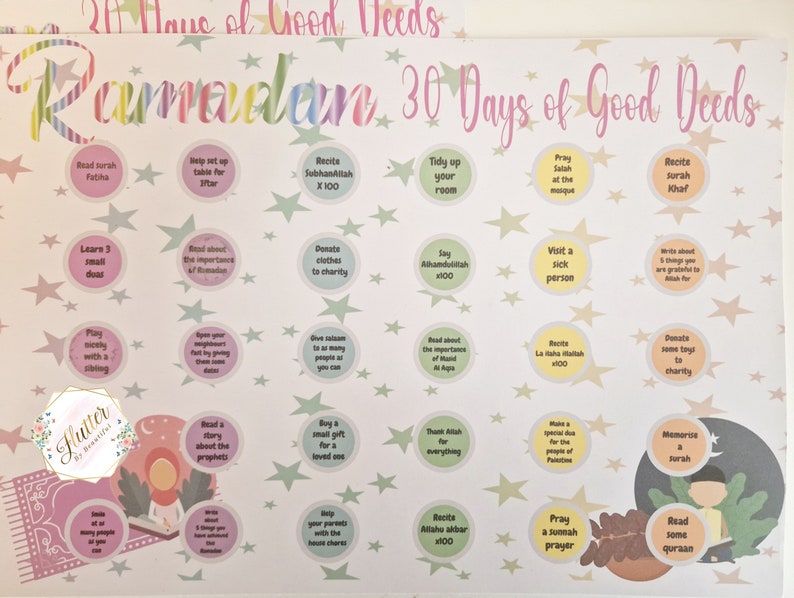 30 Days of Good Deeds
Ramadan 30 Days of Good Deeds
Read surah
Fatiha
Help set up
table for
Iftar
Recite
SubhanAllah
X 100
Tidy up
your
room
Pray
Salah
at the
mosque
Recite
surah
Khaf
Learn 3
small
duas
Read about
the importance
of Ramadan
Donate
clothes
to charity
Say
Alhamdulillah
x100
Visit a
sick
person
Write about
5 things you
are grateful to
Allah for
Play
nicely
with a
sibling
Open your
neighbours
fast by giving
them some
dates
Give salaam
to as many
people as
you can
Read about
the importance
of Masid
Al Aqsa
Recite
La ilaha illallah
x100
Donate
some toys
to
charity
Flutter
By Beautiful
Read a
story
about the
prophets
Buy a
small gift
for a
loved one
Thank Allah
for
everything
Make a
special dua
for the
people of
Palestine
Memorise
a
surah
Smile
at as
many people
as you
can
Write
about
5 things you
have achieved
this
Ramadan
Help
your parents
with the
house chores
Recite
Allahu akbar
x100
Pray
a sunnah
prayer
Read
some
quraan